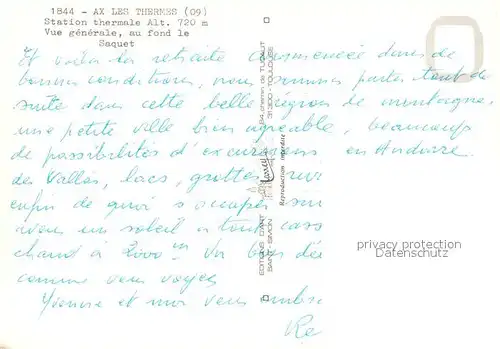 1844 - AX LES THERMES (09)
Station thermale Alt. 720 m
Vue générale, au fond le
Saquet
Et voilà la retraite commencée dans de
bonnes conditions, nous sommes partis tout de
suite dans cette belle région de montagne,
une petite ville bien agréable, beaucoup
de possibilités d'excursions en Andorre
des Vallées, lacs, grottes
enfin de quoi s'occuper
avec un soleil à tout cass
chaud à 2000 m Un bon dé
comme vous voyez
Yvonne et moi vous embr
EDITIONS D'ART
SAINT-SIMON
84, chemin de TUCAUT
31300-TOULOUSE
Reproduction interdite
privacy protection
Datenschutz